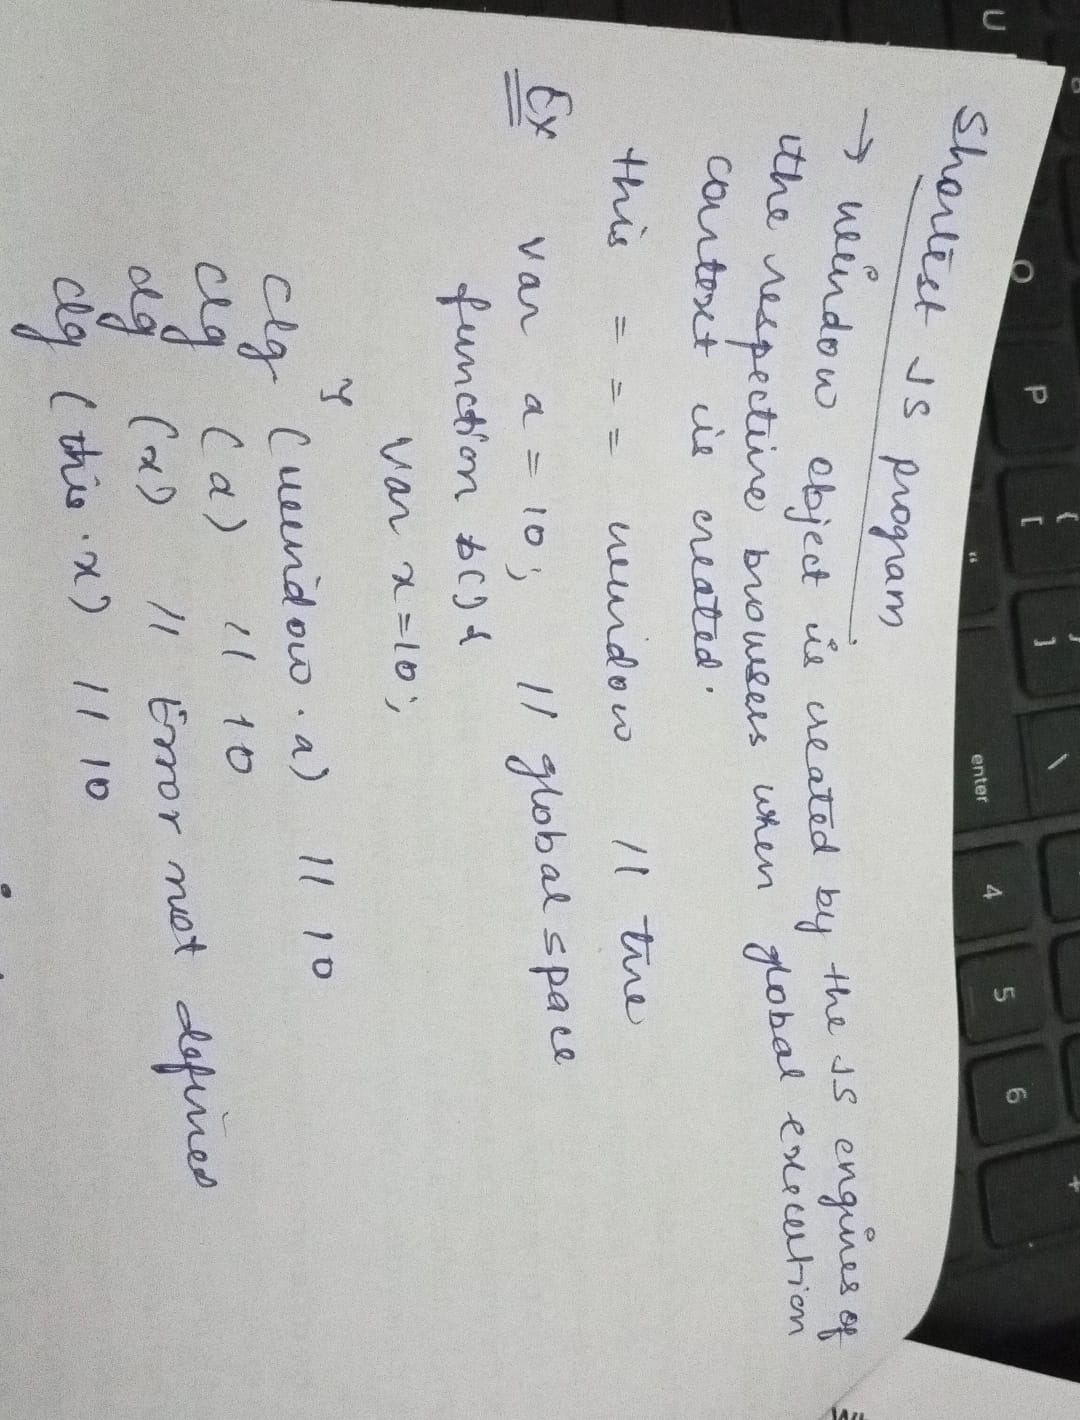 Shortest JS program
→ window object is created by the JS engines of
the respective browsers when global execution
context is created.
this === window // true
Ex var a = 10; // global space
function b() {
var x = 10;
}
clg (window.a) // 10
clg (a) // 10
clg (x) // Error not defined
clg (this.x) // 10
U
O
P
{
[
}
]
\
"
enter
4
5
6
+